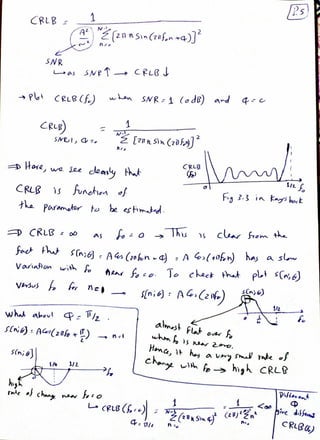 P5
CRLB = 1 / (A²/σ²) Σ_{n=0}^{N-1} [2πn sin(2πf₀n+φ)]²
SNR
↳ as SNR↑ → CRLB↓
→ Plot CRLB(f₀) when SNR=1 (0dB) and φ=0
CRLB)_{SNR=1, φ=0} = 1 / Σ_{n=0}^{N-1} [2πn sin(2πf₀n)]²
⇒ Here, we see clearly that
CRLB is function of
the parameter to be estimated.
CRLB (f₀)
0 1/2 f₀
Fig 3.3 in Kay's book
⇒ CRLB = ∞ as f₀ = 0 → This is clear from the
fact that s(n;θ) = A Cos(2πf₀n+φ) = A Cos(2πf₀n) has a slow
variation with f₀ near f₀=0. To check that plot s(n;θ)
versus f₀ for n=1 → s(n;θ) = A Cos(2πf₀)
s(n;θ)
f₀
almost flat over f₀
when f₀ is near zero.
Hence, it has a very small rate of
change with f₀ → high CRLB
what about φ=π/2.
s(n;θ) = A Cos(2πf₀+π/2) → n=1
s(n;θ)
1/4 1/2 f₀
high
rate of change near f₀=0
↳ CRLB(f₀=0)_{φ=π/2} = 1 / Σ_{n=0}^{N-1} (2πn sin φ)² = 1 / (2π)² Σ n² < ∞
Different
φ
give different
CRLB(f₀)